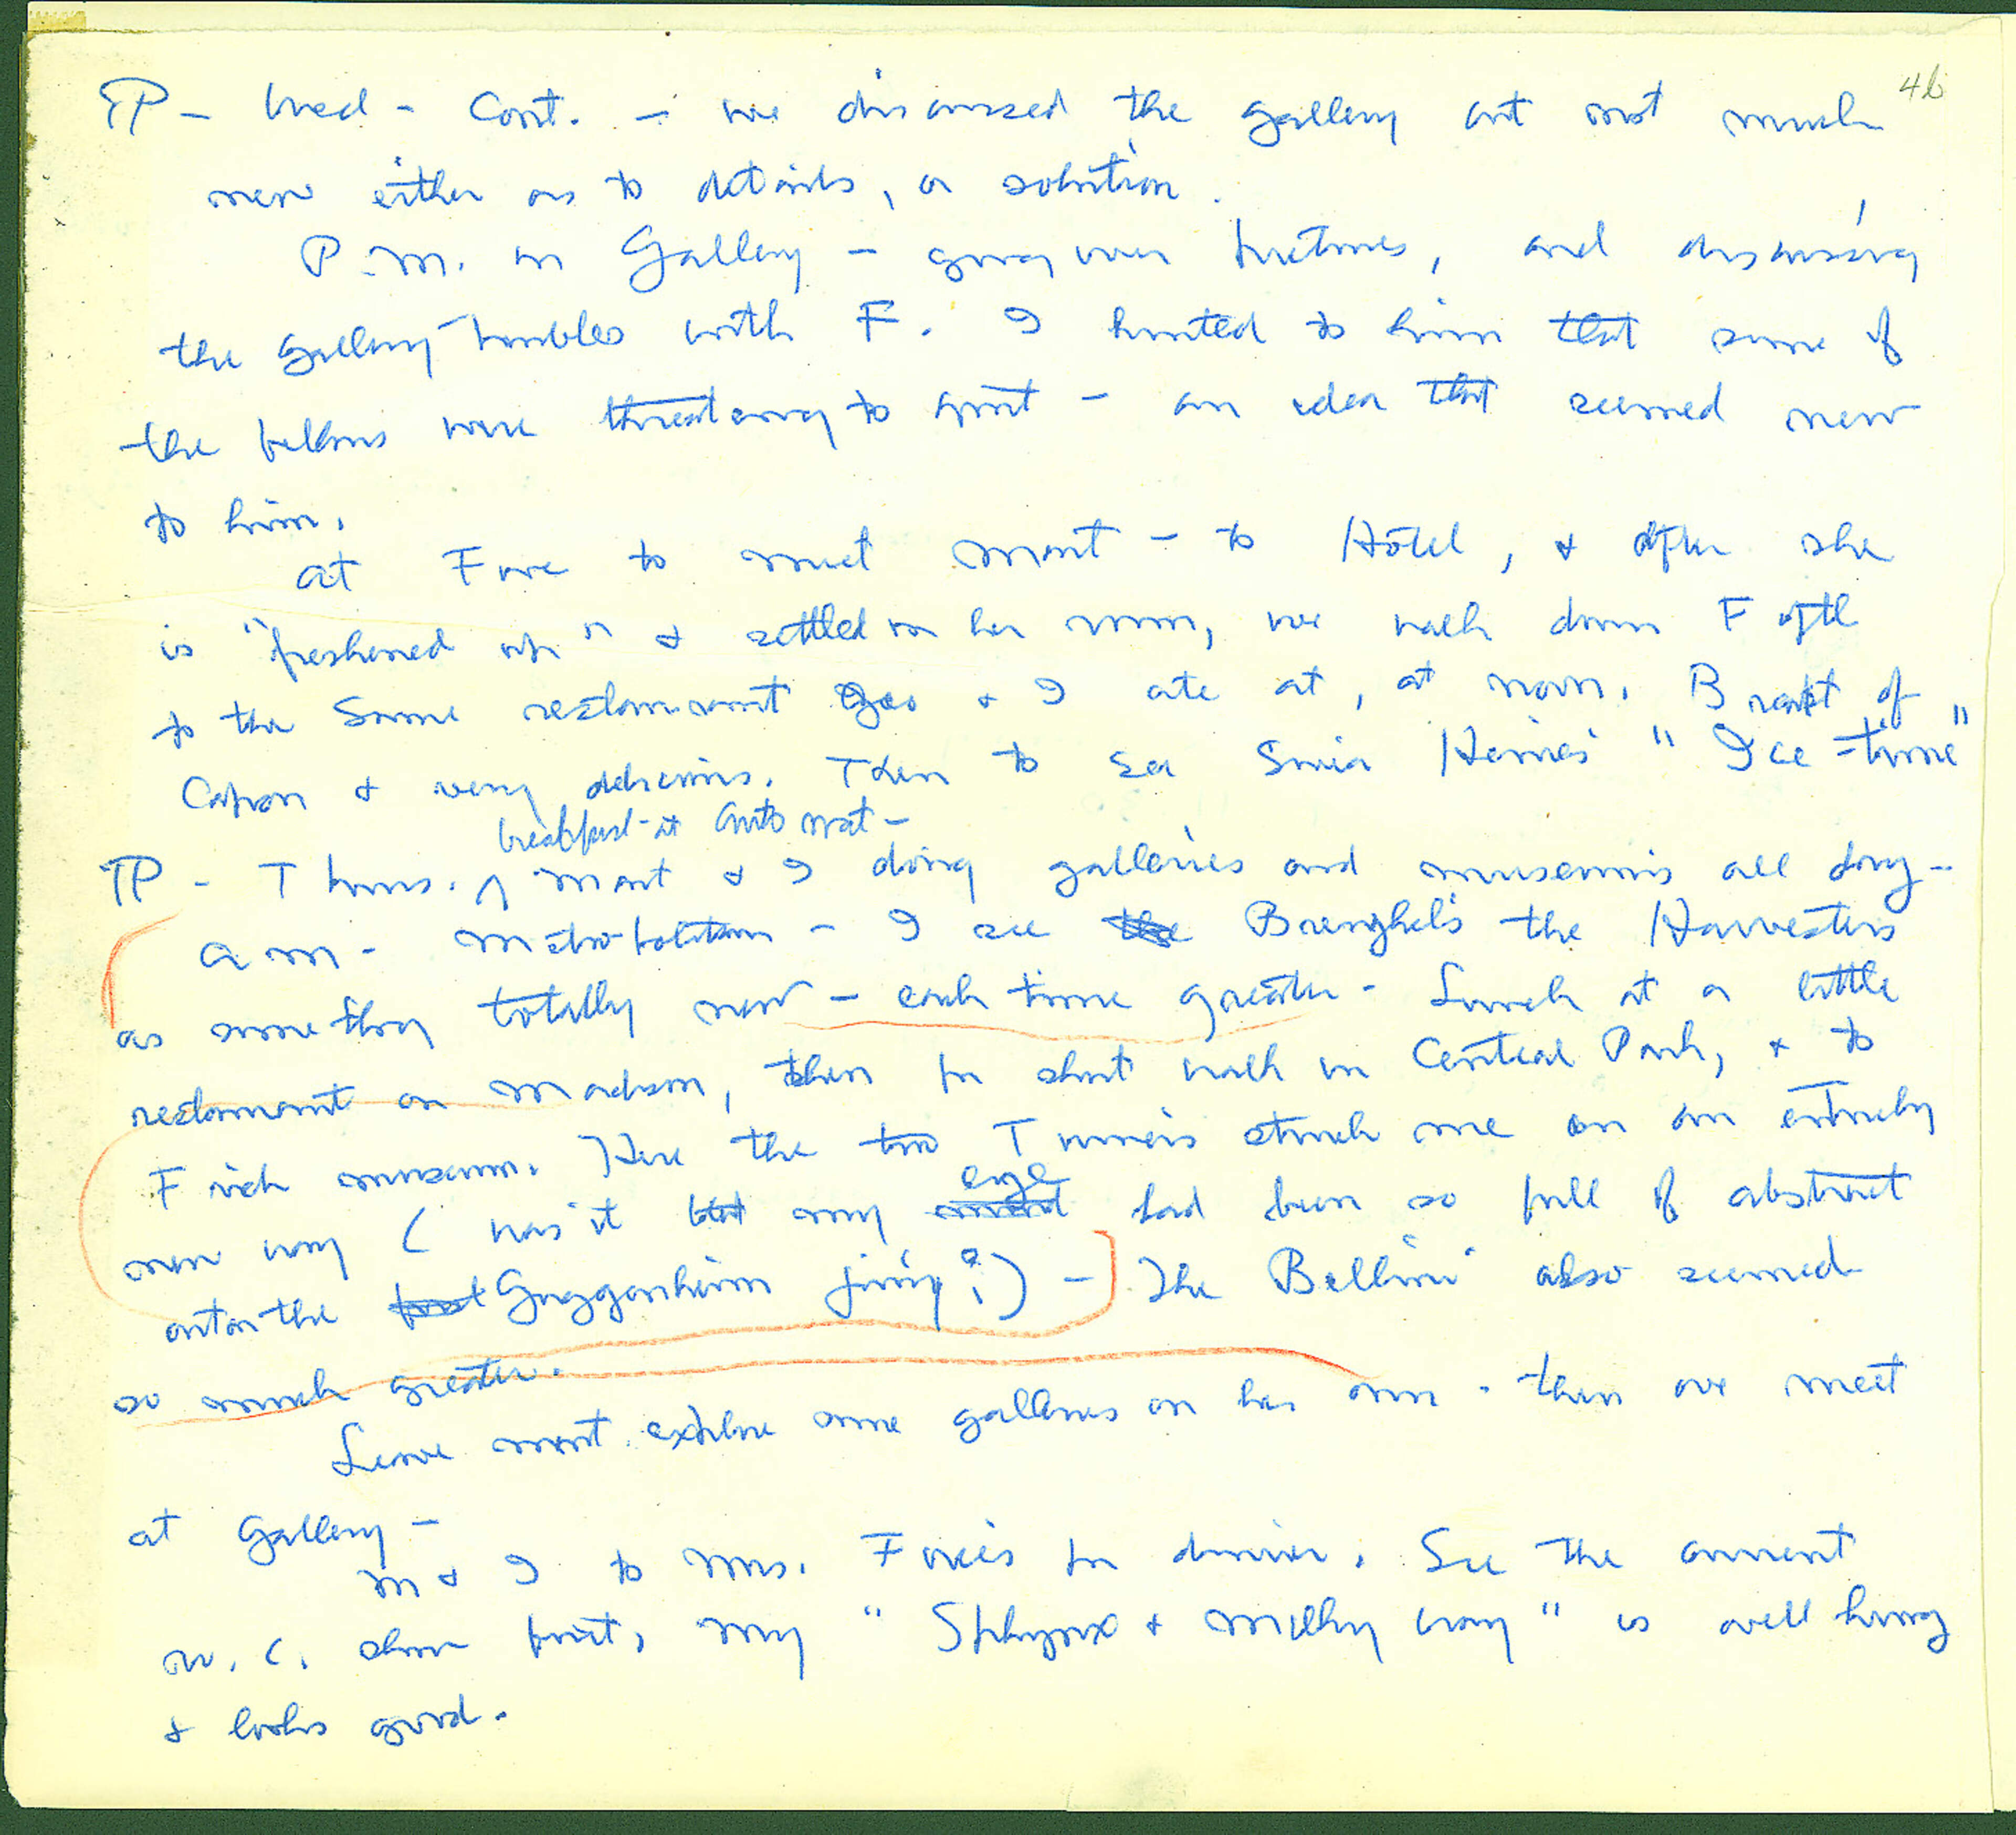 46
TP - Wed - Cont. - we discussed the gallery art not much
new either as to details, or solution.
P.M. in Gallery - going over pictures, and discussing
the gallery troubles with F. I hinted to him that some of
the fellows were threatening to quit - an idea that seemed new
to him.
at Five to meet Mart - to Hotel, & after she
is "freshened up" & settled in her room, we walk down Fifth
to the same restaurant Geo & I ate at, at noon. Breast of
Capon & very delicious. Then to see Sonia Henie's "Ice-time"
breakfast at Automat -
TP - Thurs. ^ Mart & I doing galleries and museums all day -
A.M. - Metropolitan - I see the Breughel's the Harvesters
as something totally new - each time greater - Lunch at a little
restaurant on Madison, then for short walk in Central Park, & to
Frick museum. Here the two Turners struck me in an entirely
new way (was it that my eye had been so full of abstract
art on the Guggenheim jury?) - ] The Bellini also seemed
so much greater.
Leave Mart explore some galleries on her own - then we meet
at Gallery -
M & I to Mrs. F for dinner. See the current
W.C. show first, my "Sphynx & Milky Way" is well hung
& looks good.